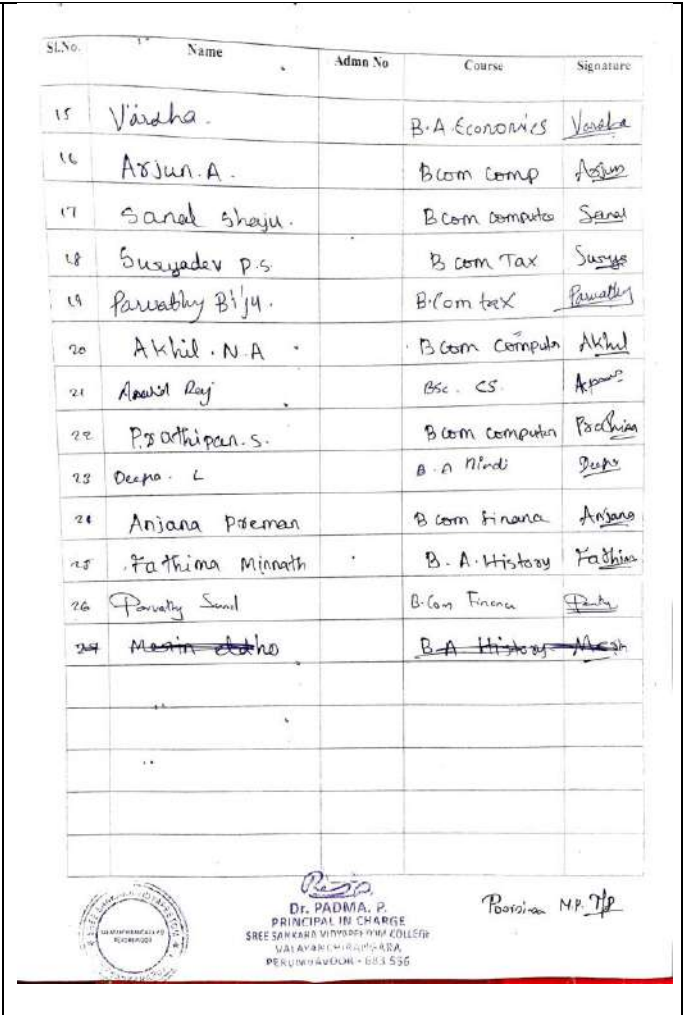 Sl.No. Name Admn No Course Signature
15 Varsha. B.A. Economics Varsha
16 Arjun.A. B com comp Arjun
17 Sanal Shaju. B com computer Sanal
18 Suryadev P.S. B com Tax Surya
19 Parvathy Biju. B.Com tax Parvathy
20 Akhil.N.A B com Computer Akhil
21 Raj BSc. CS.
22 Prathipan.S. B com computer
23 Deepa. L B.A Hindi Deepa
24 Anjana Preman B com Finance Anjana
25 Fathima Minnath B.A. History Fathima
26 Parvathy B.Com Finance
B.A History
Dr. PADMA. P.
PRINCIPAL IN CHARGE
SREE SANKARA VIDYAPEETOM COLLEGE
VALAYANCHIRANGARA
PERUMBAVOOR - 683 556
M.P.